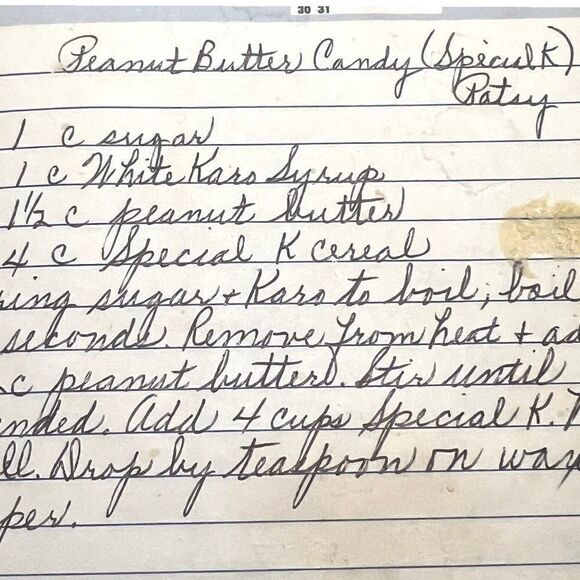 30 31
Peanut Butter Candy (Special K)
Patsy
1 c sugar
1 c White Karo Syrup
1½ c peanut butter
4 c Special K cereal
ring sugar + Karo to boil; boil
seconds. Remove from heat + ad
c peanut butter. Stir until
nded. Add 4 cups Special K.
ll. Drop by teaspoon on wax
per.